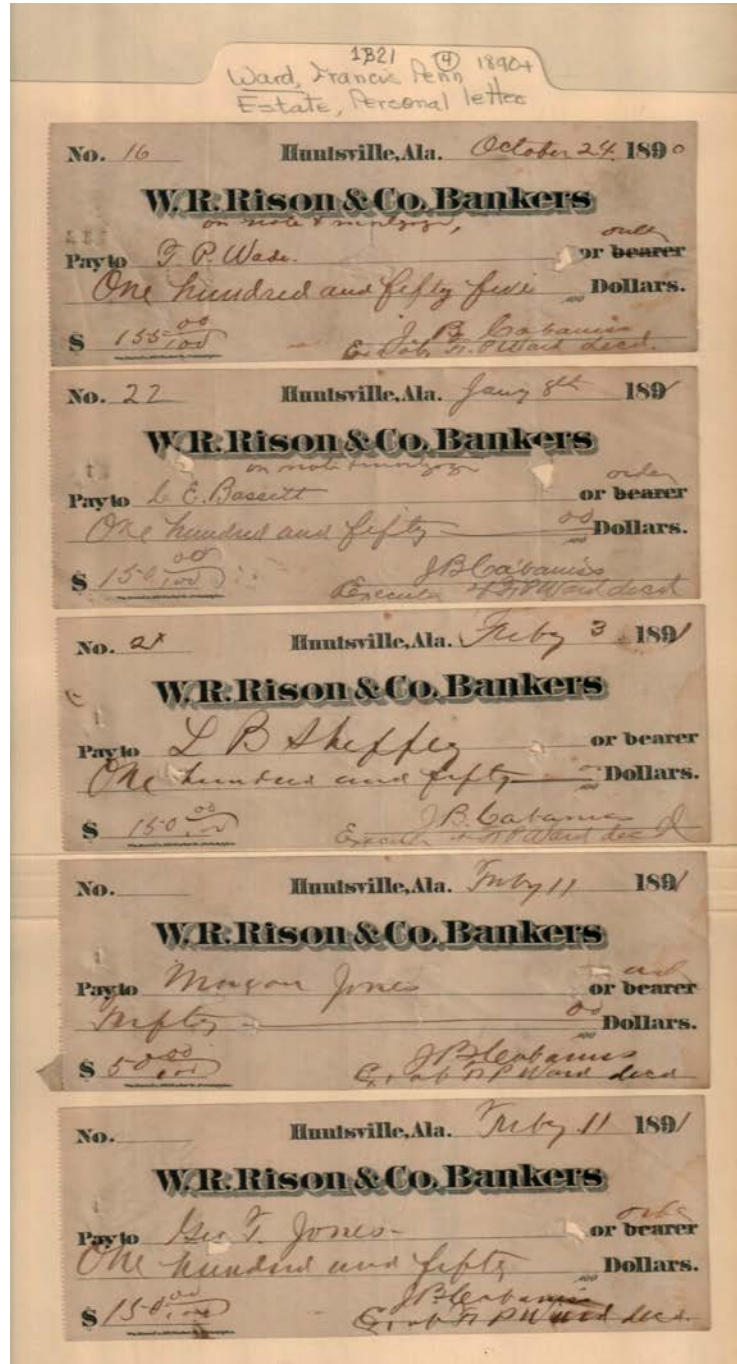 1B21 (4) 1890+
Ward, Francis Penn
Estate, Personal letter
No. 16 Huntsville, Ala. October 24 1890
W. R. Rison & Co. Bankers
on note & mortgage,
order
Pay to T. P. Wade. or bearer
One hundred and fifty five /100 Dollars.
$ 155 00/100 J. B. Cabaniss
Ex of F. P. Ward decd.
No. 22 Huntsville, Ala. Jany 8th 1891
W. R. Rison & Co. Bankers
on note & mortgage
order
Pay to C. E. Bassett or bearer
One hundred and fifty 00/100 Dollars.
$ 150 00/100 J B Cabaniss
Executor of F. P Ward decd
No. Huntsville, Ala. Feby 3 1891
W. R. Rison & Co. Bankers
Pay to L B Sheffey or bearer
One hundred and fifty Dollars.
$ 150 00/100 J. B. Cabaniss
Executor of F P Ward decd
No. Huntsville, Ala. Feby 11 1891
W. R. Rison & Co. Bankers
Pay to Morgan Jones or bearer
Fifty 00/100 Dollars.
$ 50 00/100 J B Cabaniss
Ex of F P Ward decd
No. Huntsville, Ala. Feby 11 1891
W. R. Rison & Co. Bankers
order
Pay to Geo T. Jones - or bearer
One hundred and fifty /100 Dollars.
$ 150 00/100 J B Cabaniss
Ex of F P Ward decd.